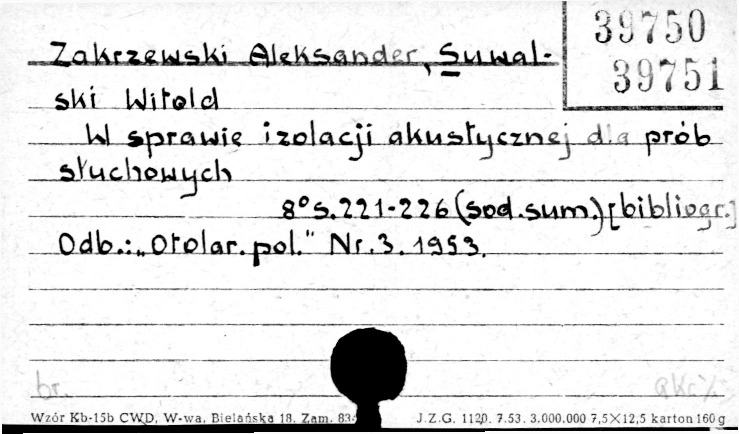 39750
39751
Zakrzewski Aleksander, Suwal-
ski Witold
W sprawie izolacji akustycznej dla prób
słuchowych
8° s. 221-226 (sod. sum.) [bibliogr.]
Odb.: „Otolar. pol." Nr. 3. 1953.
br.
Wzór Kb-15b CWD, W-wa, Bielańska 18. Zam. 834
J.Z.G. 1120. 7.53. 3.000.000 7,5×12,5 karton 160 g